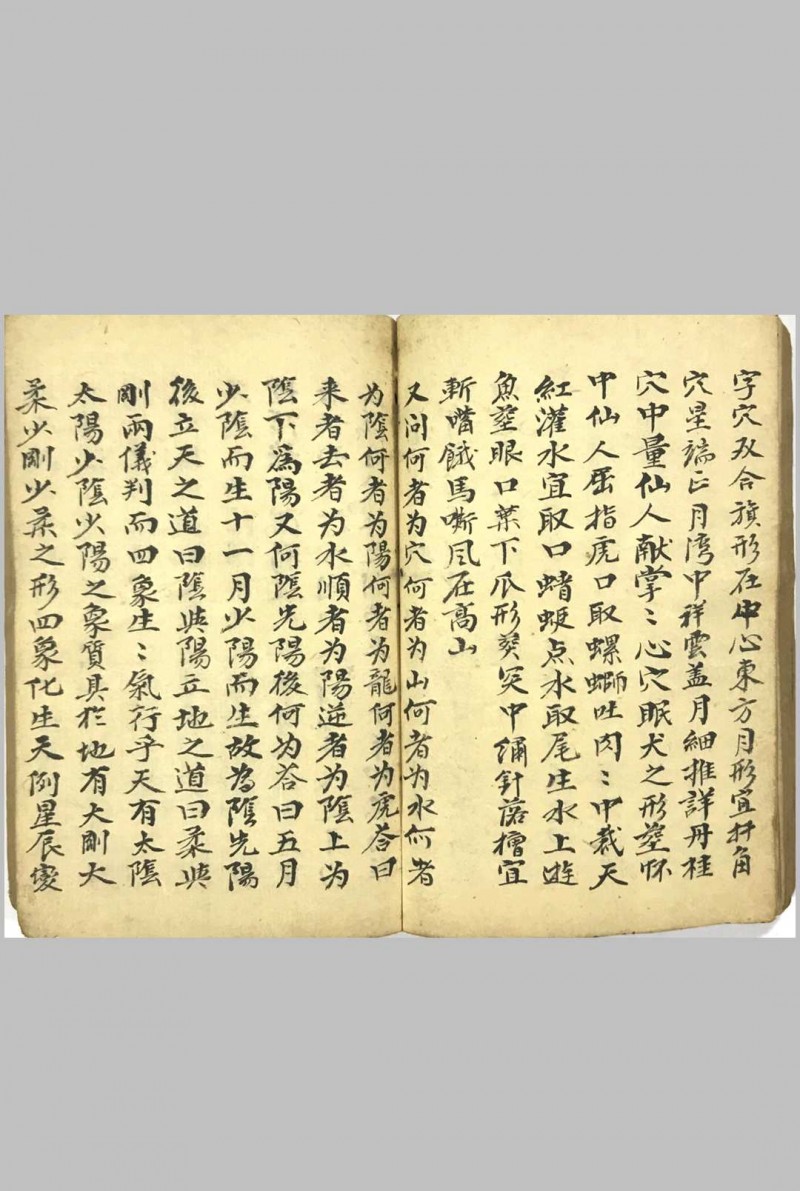 字穴双合旗形在中心東方月形宜扦角
穴星端正月湾中祥雲盖月細推詳丹桂
穴中量仙人献掌〻心穴眠犬之形塟怀
中仙人屈指虎口取螺螄吐肉〻中裁天
紅灌水宜取口蜻蜓点水取尾生水上遊
魚塟眼口葉下瓜形葵突中繡針落檜宜
斬嘴餓馬嘶風在高山
又问何者为穴何者为山何者为水何者
为陰何者为陽何者为龍何者为虎荅曰
来者去者为水順者为陽逆者为陰上为
陰下爲陽又何陰先陽後何为荅曰五月
少陰而生十一月少陽而生故為陰先陽
後立天之道曰陰與陽立地之道曰柔與
剛兩儀判而四象生〻氣行乎天有太陰
太陽少陰少陽之象質具於地有大剛大
柔少剛少柔之形四象化生天例星辰變